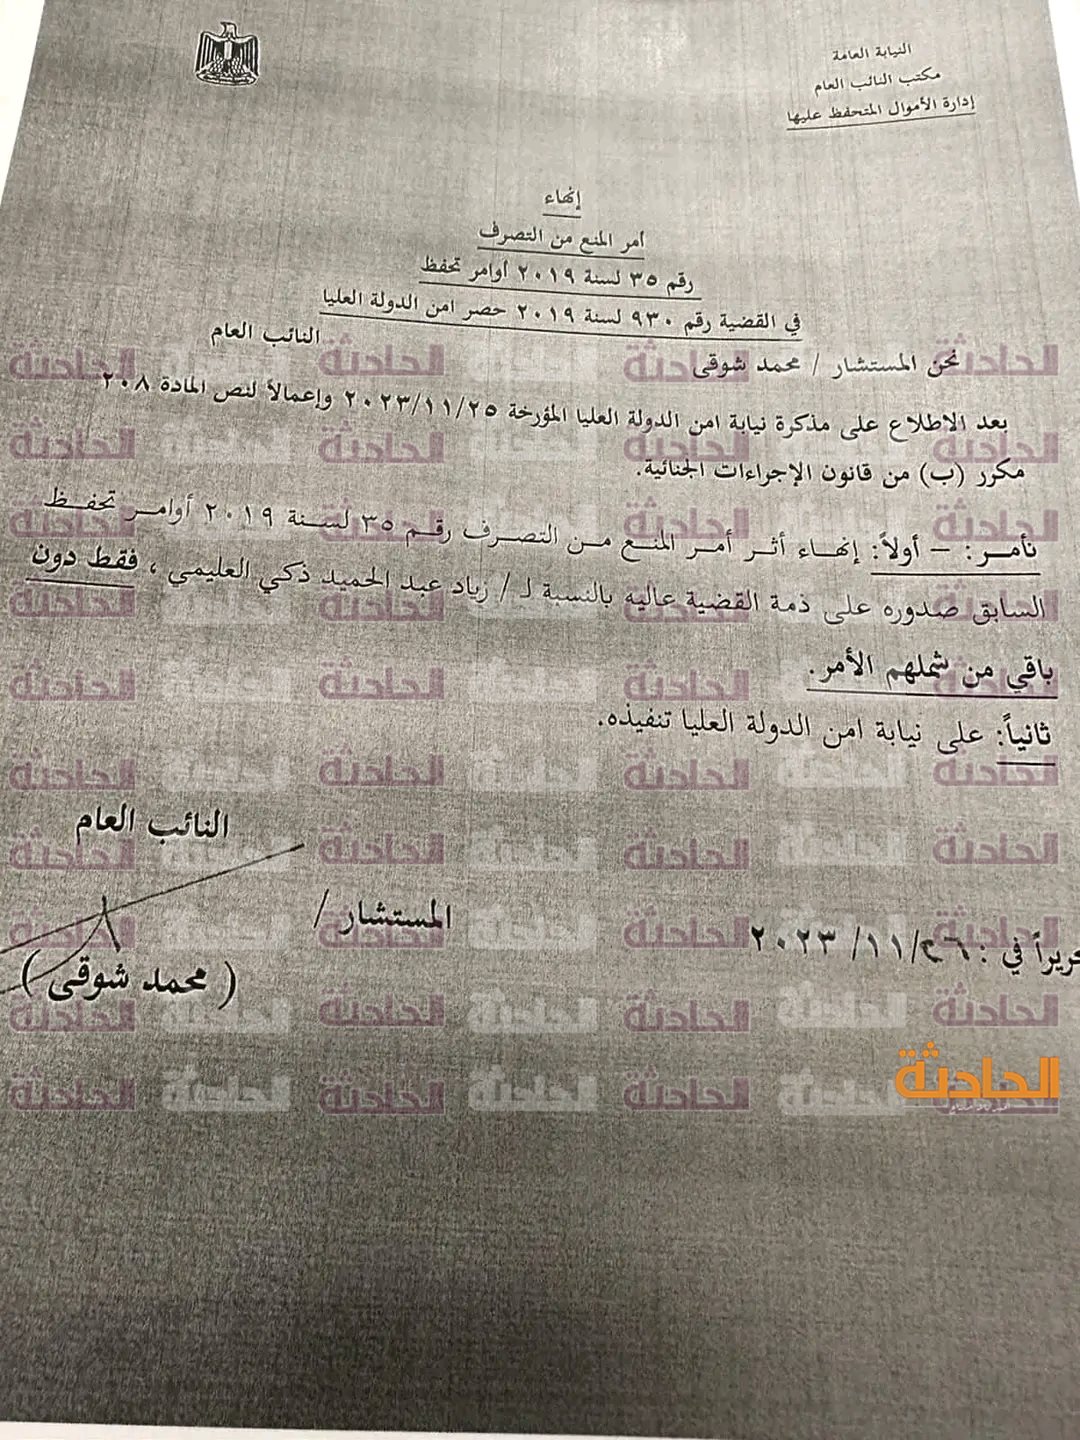 النيابة العامة
مكتب النائب العام
إدارة الأموال المتحفظ عليها
إنهاء
أمر المنع من التصرف
رقم ٣٥ لسنة ٢٠١٩ أوامر تحفظ
في القضية رقم ٩٣٠ لسنة ٢٠١٩ حصر امن الدولة العليا
نحن المستشار / محمد شوقى النائب العام
بعد الاطلاع على مذكرة نيابة امن الدولة العليا المؤرخة ٢٠٢٣/١١/٢٥ وإعمالاً لنص المادة ٢٠٨
مكرر (ب) من قانون الإجراءات الجنائية.
نأمر: – أولاً: إنهاء أثر أمر المنع من التصرف رقم ٣٥ لسنة ٢٠١٩ أوامر تحفظ
السابق صدوره على ذمة القضية عاليه بالنسبة لـ / زياد عبد الحميد ذكي العليمي ، فقط دون
باقي من شملهم الأمر.
ثانياً: على نيابة امن الدولة العليا تنفيذه.
النائب العام
المستشار /
حريراً في : ٢٠٢٣/١١/٢٦
( محمد شوقى )
الحادثة